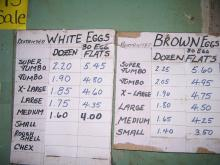 Sale
WHITE EGGS
DOZEN 30 EGG FLATS
SUPER JUMBO 2.20 5.45
JUMBO 1.90 4.80
X-LARGE 1.85 4.60
LARGE 1.75 4.35
MEDIUM 1.60 4.00
SMALL
ROUGH SHELL
CHEX
BROWN EGGS
DOZEN 30 EGG FLATS
SUPER JUMBO 2.25 5.60
JUMBO 2.05 4.95
X-LARGE 1.90 4.75
LARGE 1.80 4.50
MEDIUM 1.65 4.25
SMALL 1.40 3.50